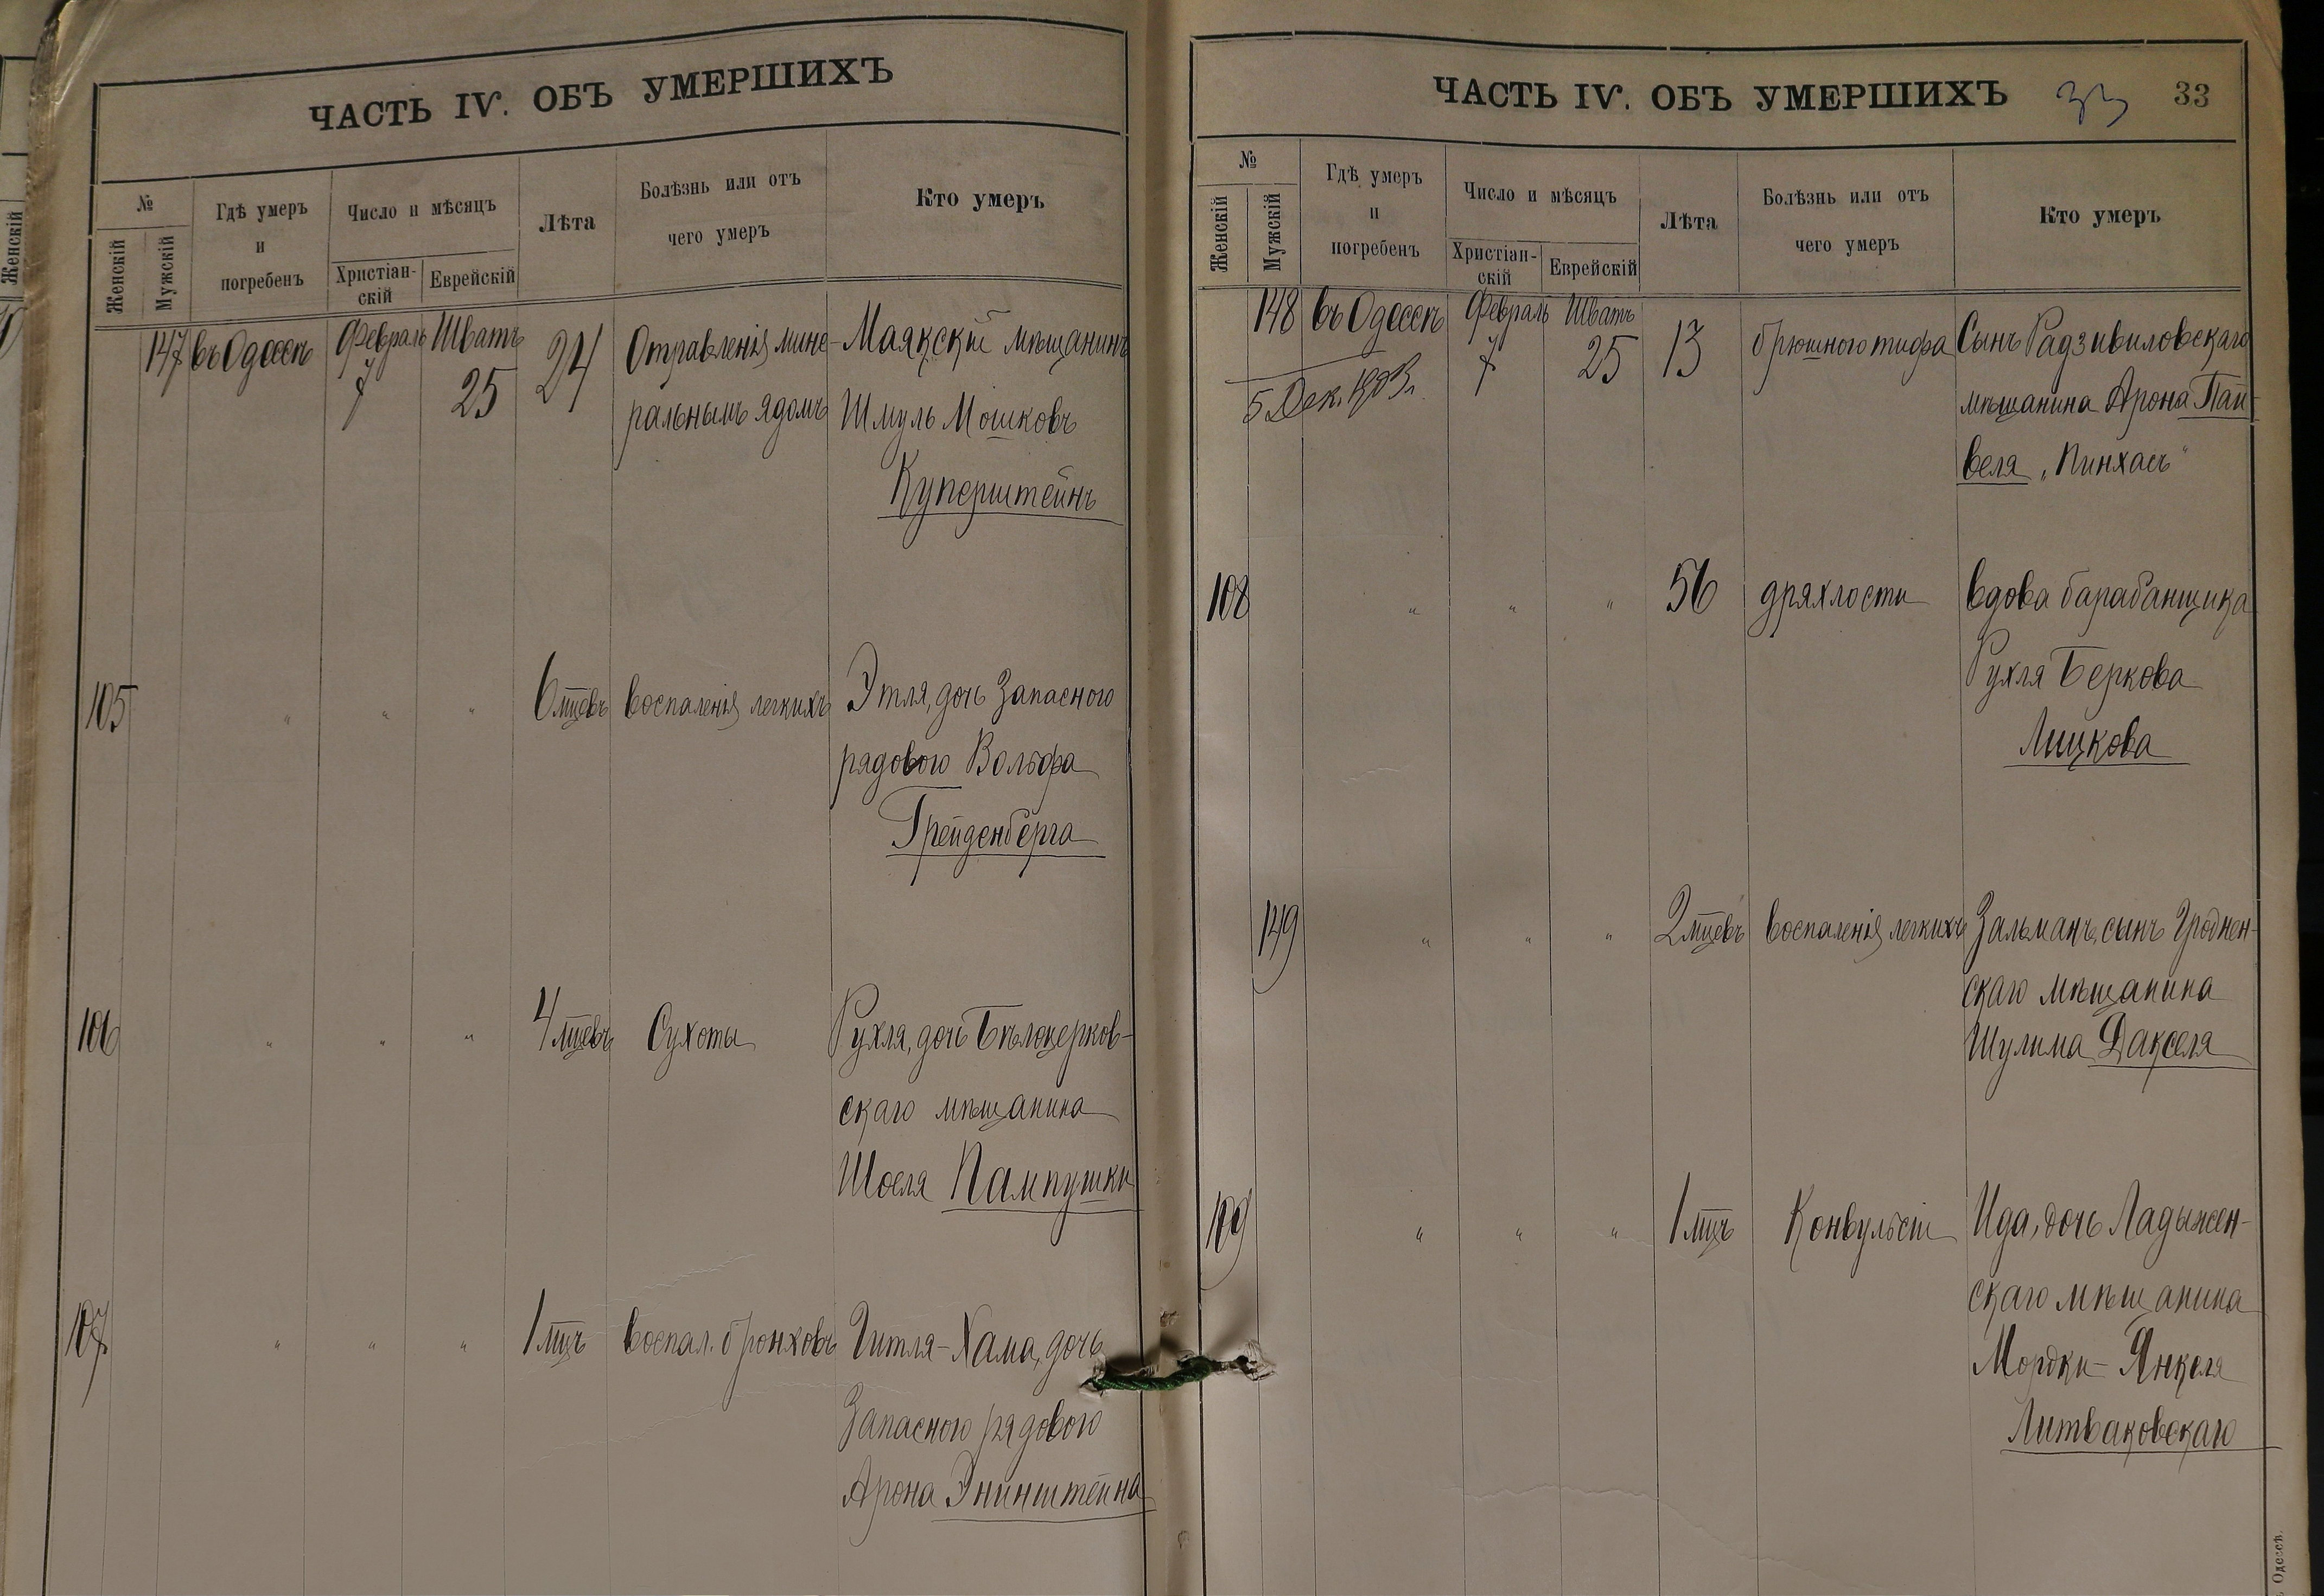 ЧАСТЬ IV. ОБЪ УМЕРШИХЪ
№
Женскій
Мужскій
Гдѣ умеръ
и
погребенъ
Число и мѣсяцъ
Христіан-
скій
Еврейскій
Лѣта
Болѣзнь или отъ
чего умеръ
Кто умеръ
147 въ Одессѣ Февраль Шватъ 24 Отравленія мине- Маякскій мѣщанинъ
7 25 ральнымъ ядомъ Шмуль Мошковъ
Куперштейнъ
105 " " " 6 мцевъ воспаленія легкихъ Этля, дочь Запасного
рядового Вольфа
Грейденберга
106 " " " 4 мцевъ Сухоты Рухля, дочь Бѣлоцерков-
скаго мѣщанина
Шоеля Пампушки
107 " " " 1 мцъ воспал. бронховъ Гитля-Хама, дочь
Запасного рядового
Арона Энинштейна
ЧАСТЬ IV. ОБЪ УМЕРШИХЪ 33 33
№
Женскій
Мужскій
Гдѣ умеръ
и
погребенъ
Число и мѣсяцъ
Христіан-
скій
Еврейскій
Лѣта
Болѣзнь или отъ
чего умеръ
Кто умеръ
148 въ Одессѣ Февраль Шватъ 13 брюшного тифа Сынъ Радзивиловскаго
5 Дек. 1903 г. 7 25 мѣщанина Арона Пай-
веля „Пинхасъ"
108 " " " 56 дряхлости вдова барабанщика
Рухля Беркова
Лицкова
149 " " " 2 мцевъ воспаленія легкихъ Зальманъ, сынъ Гроднен-
скаго мѣщанина
Шулима Дакселя
109 " " " 1 мцъ Конвульсіи Ида, дочь Ладыжен-
скаго мѣщанина
Мордки-Янкеля
Литваковскаго
Одессѣ.